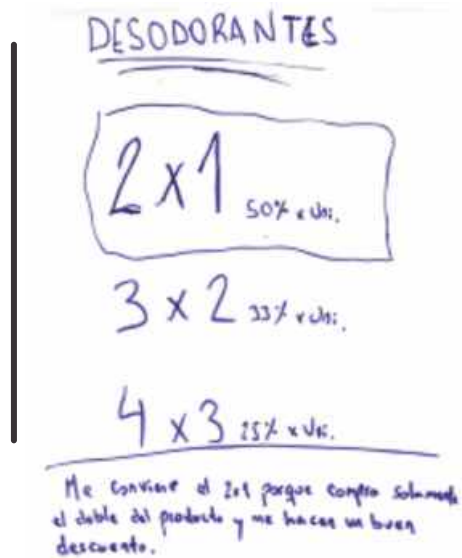 DESODORANTES
2x1 50% x Uni.
3 x 2 33% x Uni.
4 x 3 25% x Uni.
Me conviene el 2x1 porque compro solamente
el doble del producto y me hacen un buen
descuento.